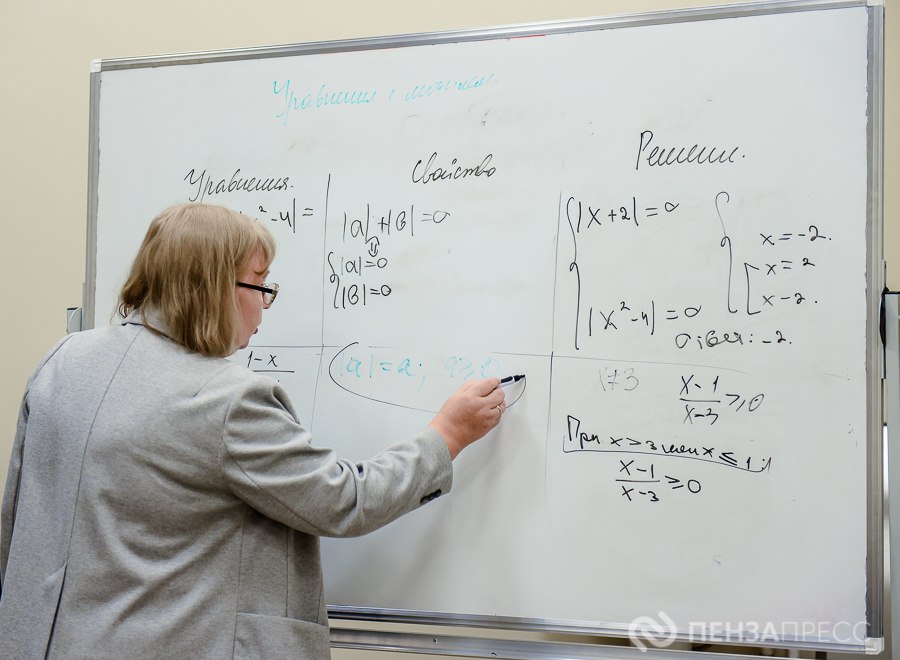 Уравнения с модулем.
Уравнения.
x²-4|=
1-x
Свойство
|a|+|b|=0
|a|=0
|b|=0
|a|=a;
Решени.
|x+2|=0
|x²-4|=0
x=-2.
x=2
x-2.
Ответ: -2.
x≠3
x-1
x-3
≥0
При x>3 или x≤1
x-1
x-3
≥0
ПЕНЗАПРЕСС